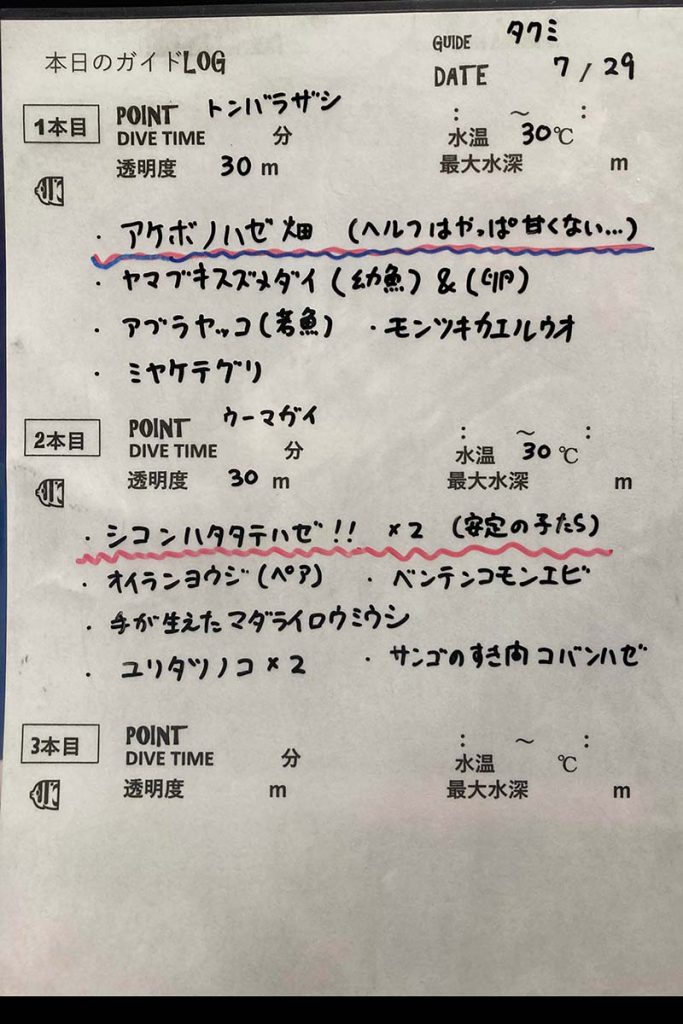 本日のガイドLOG
GUIDE タクミ
DATE 7/29
1本目 POINT トンバラザシ : ～ :
DIVE TIME 分 水温 30℃
透明度 30 m 最大水深 m
・アケボノハゼ畑 (ヘルフはやっぱ甘くない…)
・ヤマブキスズメダイ(幼魚)&(卵)
・アブラヤッコ(若魚) ・モンツキカエルウオ
・ミヤケテグリ
2本目 POINT ウーマガイ : ～ :
DIVE TIME 分 水温 30℃
透明度 30 m 最大水深 m
・シコンハタタテハゼ!! ×2 (安定の子たち)
・オイランヨウジ(ペア) ・ベンテンコモンエビ
・手が生えたマダライロウミウシ
・ユリタツノコ×2 ・サンゴのすき内コバンハゼ
3本目 POINT : ～ :
DIVE TIME 分 水温 ℃
透明度 m 最大水深 m